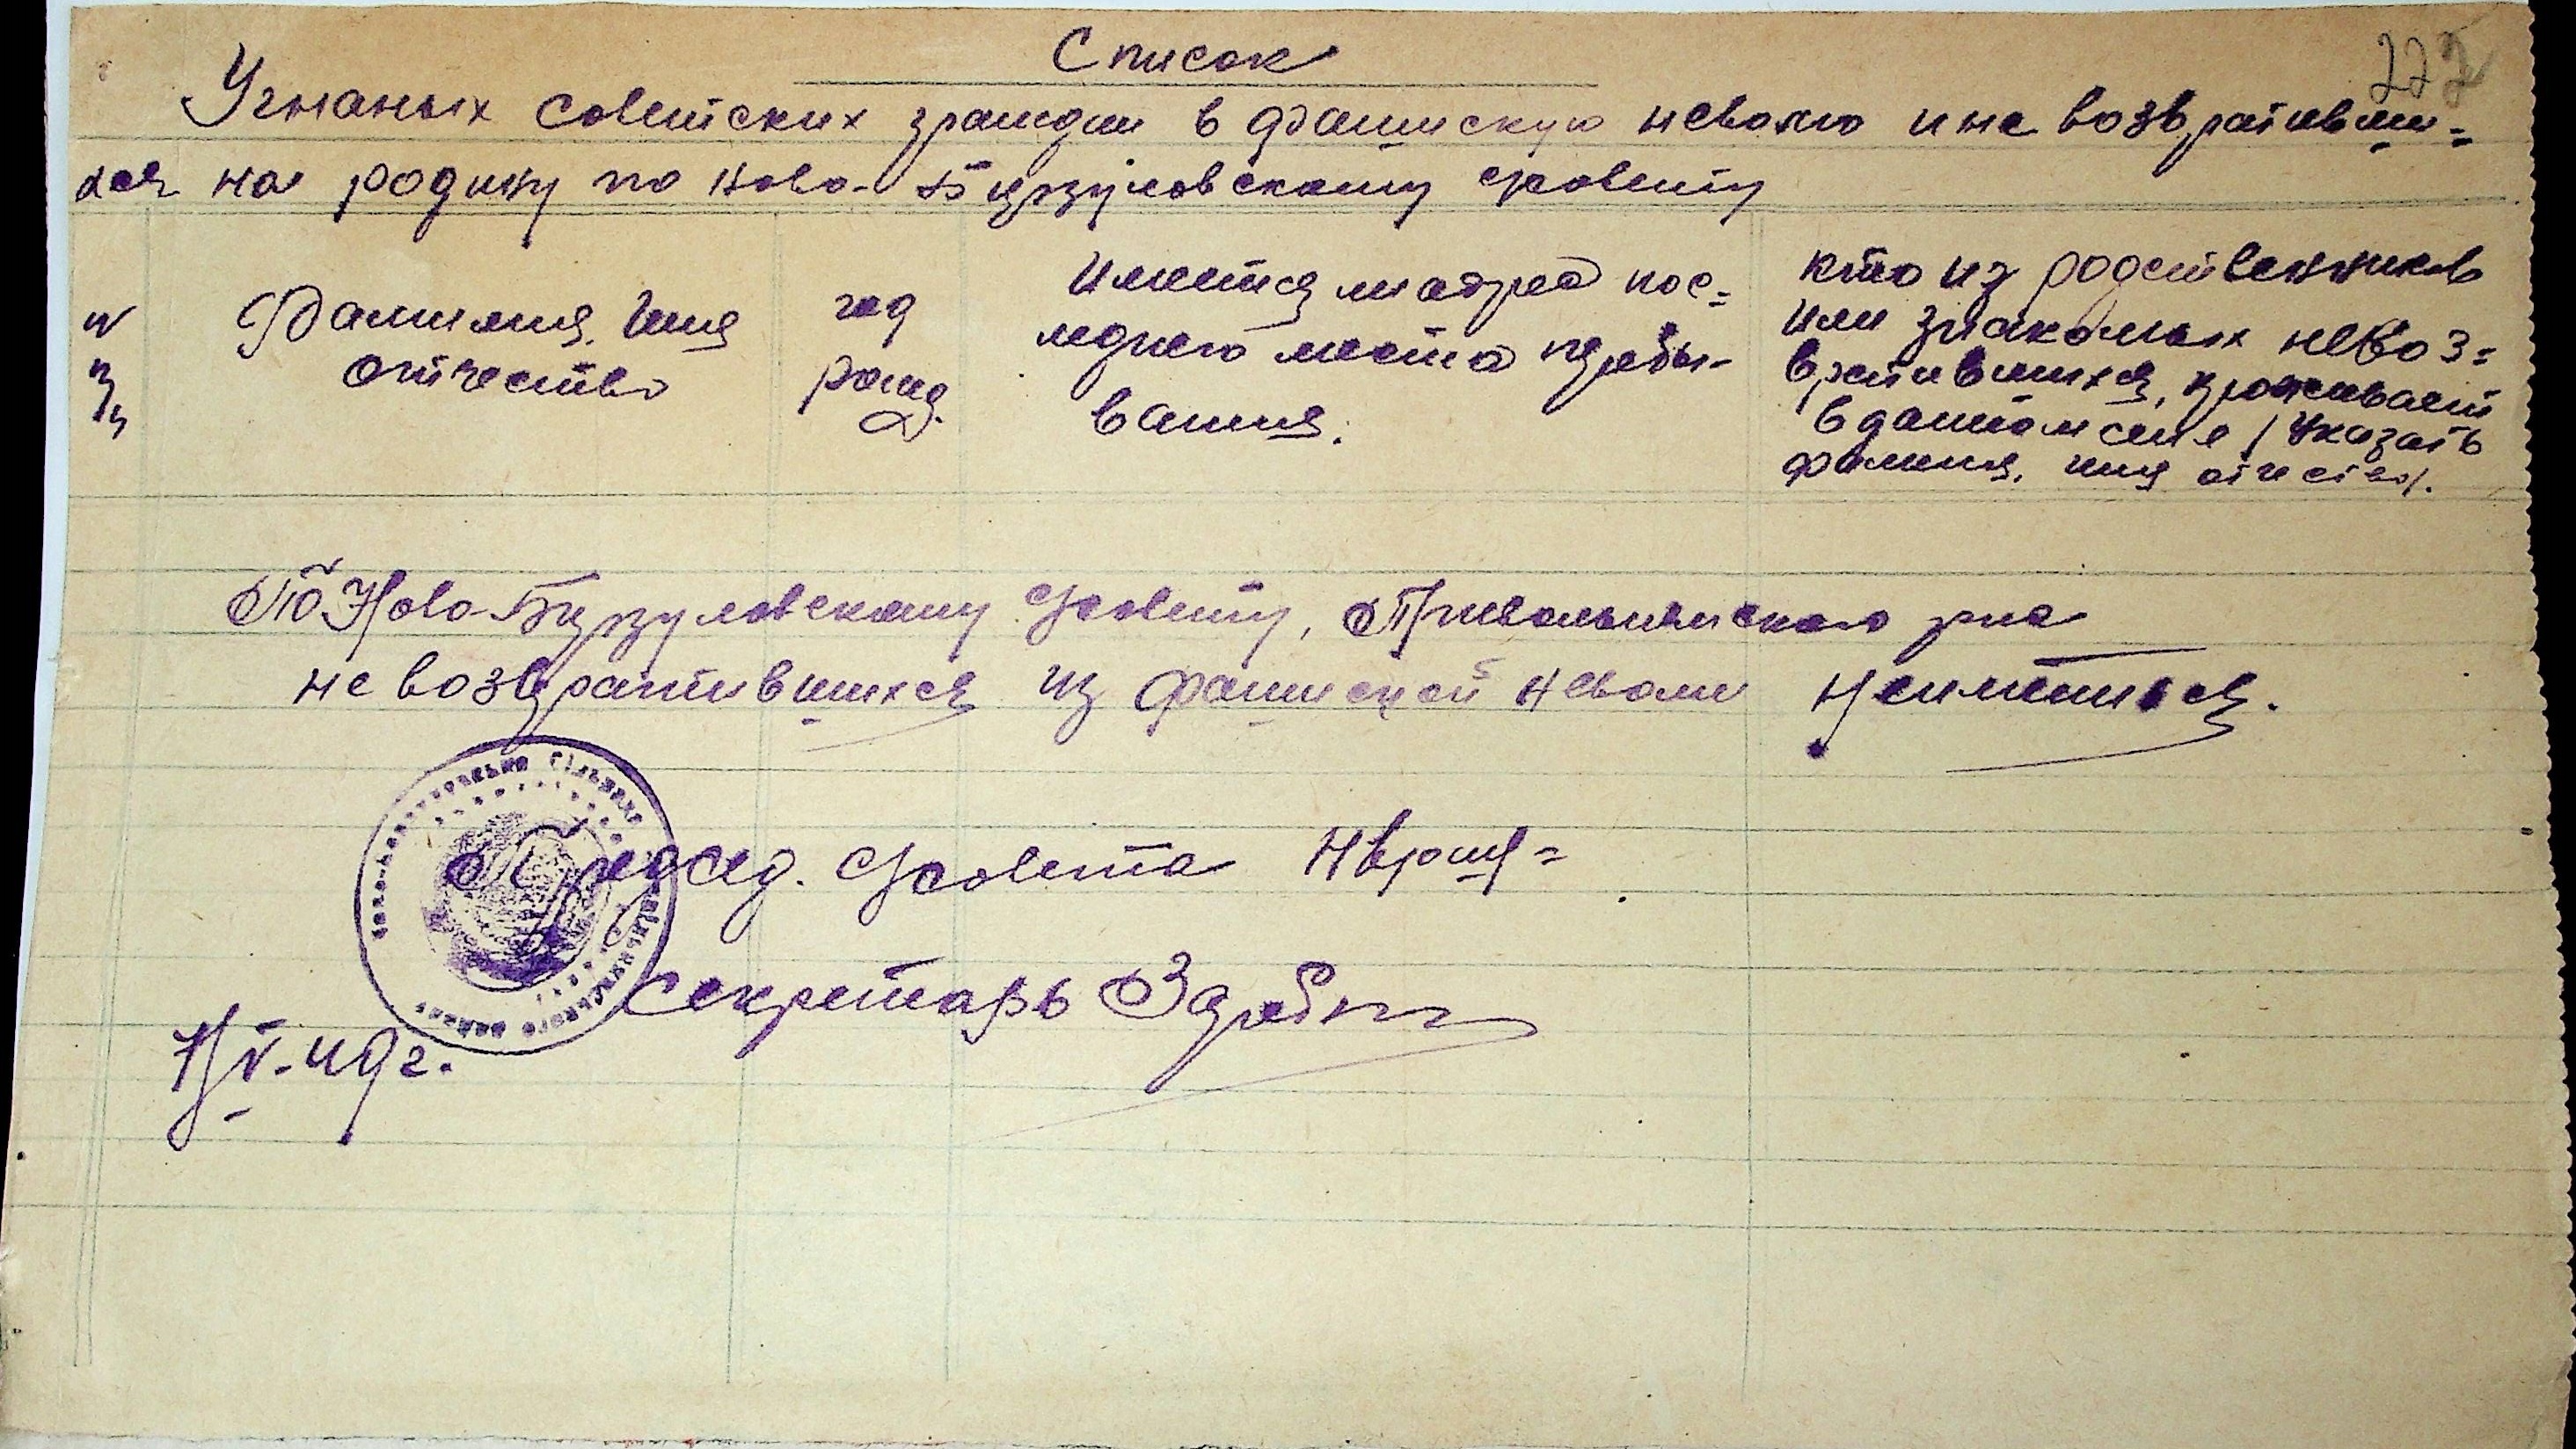 Список
227
Угнаных советских граждан в фашискую неволю и не возвративши=
хся на родину по Ново-Бурзуловскому с/совету
N п/п
Фамилия, Имя
отчество
год
рожд.
Имеется ли адрес пос=
леднего места пребы-
вания.
кто из родственников
или знакомых невоз=
вратившихся, проживает
в данном селе / Указать
фамилия, имя отчество/.
По Ново-Бурзуловскому с/совету, Привольнянского р-на
не возвратившихся из фашиской неволи неимеется.
Председ. с/совета
Секретарь
V-49г.